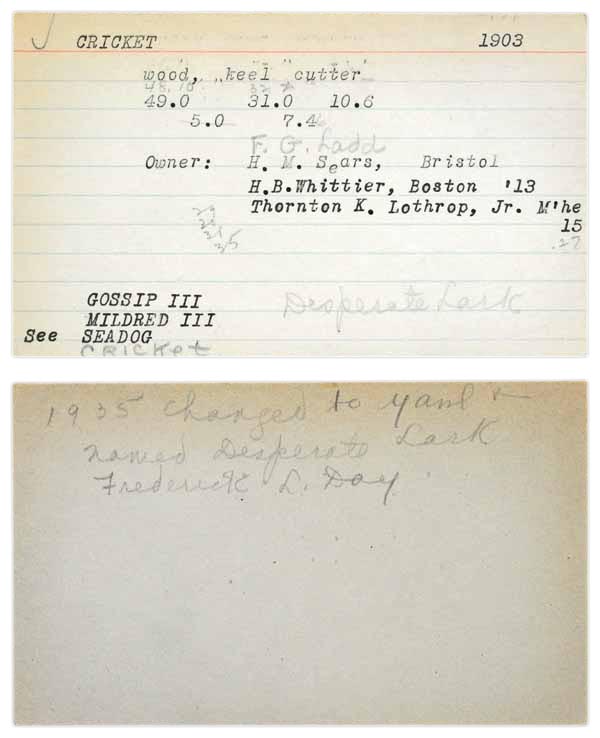 CRICKET 1903
wood, „keel "cutter
49.0 31.0 10.6
5.0 7.4
F. G. Ladd
Owner: H. M. Sears, Bristol
H.B.Whittier, Boston '13
Thornton K. Lothrop, Jr. M'he
15
35
.27
Desperate Lark
GOSSIP III
MILDRED III
See SEADOG
CRICKET
1935 changed to yawl &
named Desperate Lark
Frederick L. Day.